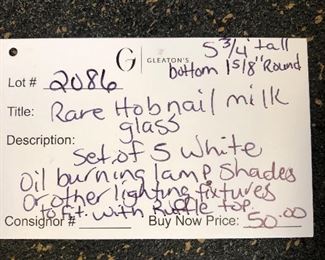 5 3/4" tall
G | GLEATON'S
bottom 1 5/8" Round
Lot # 2086
Title: Rare Hobnail milk
glass
Description:
Set of 5 White
Oil burning lamp Shades
Or other lighting fixtures
to fit. with Ruffle top.
Consignor # Buy Now Price: 50.00